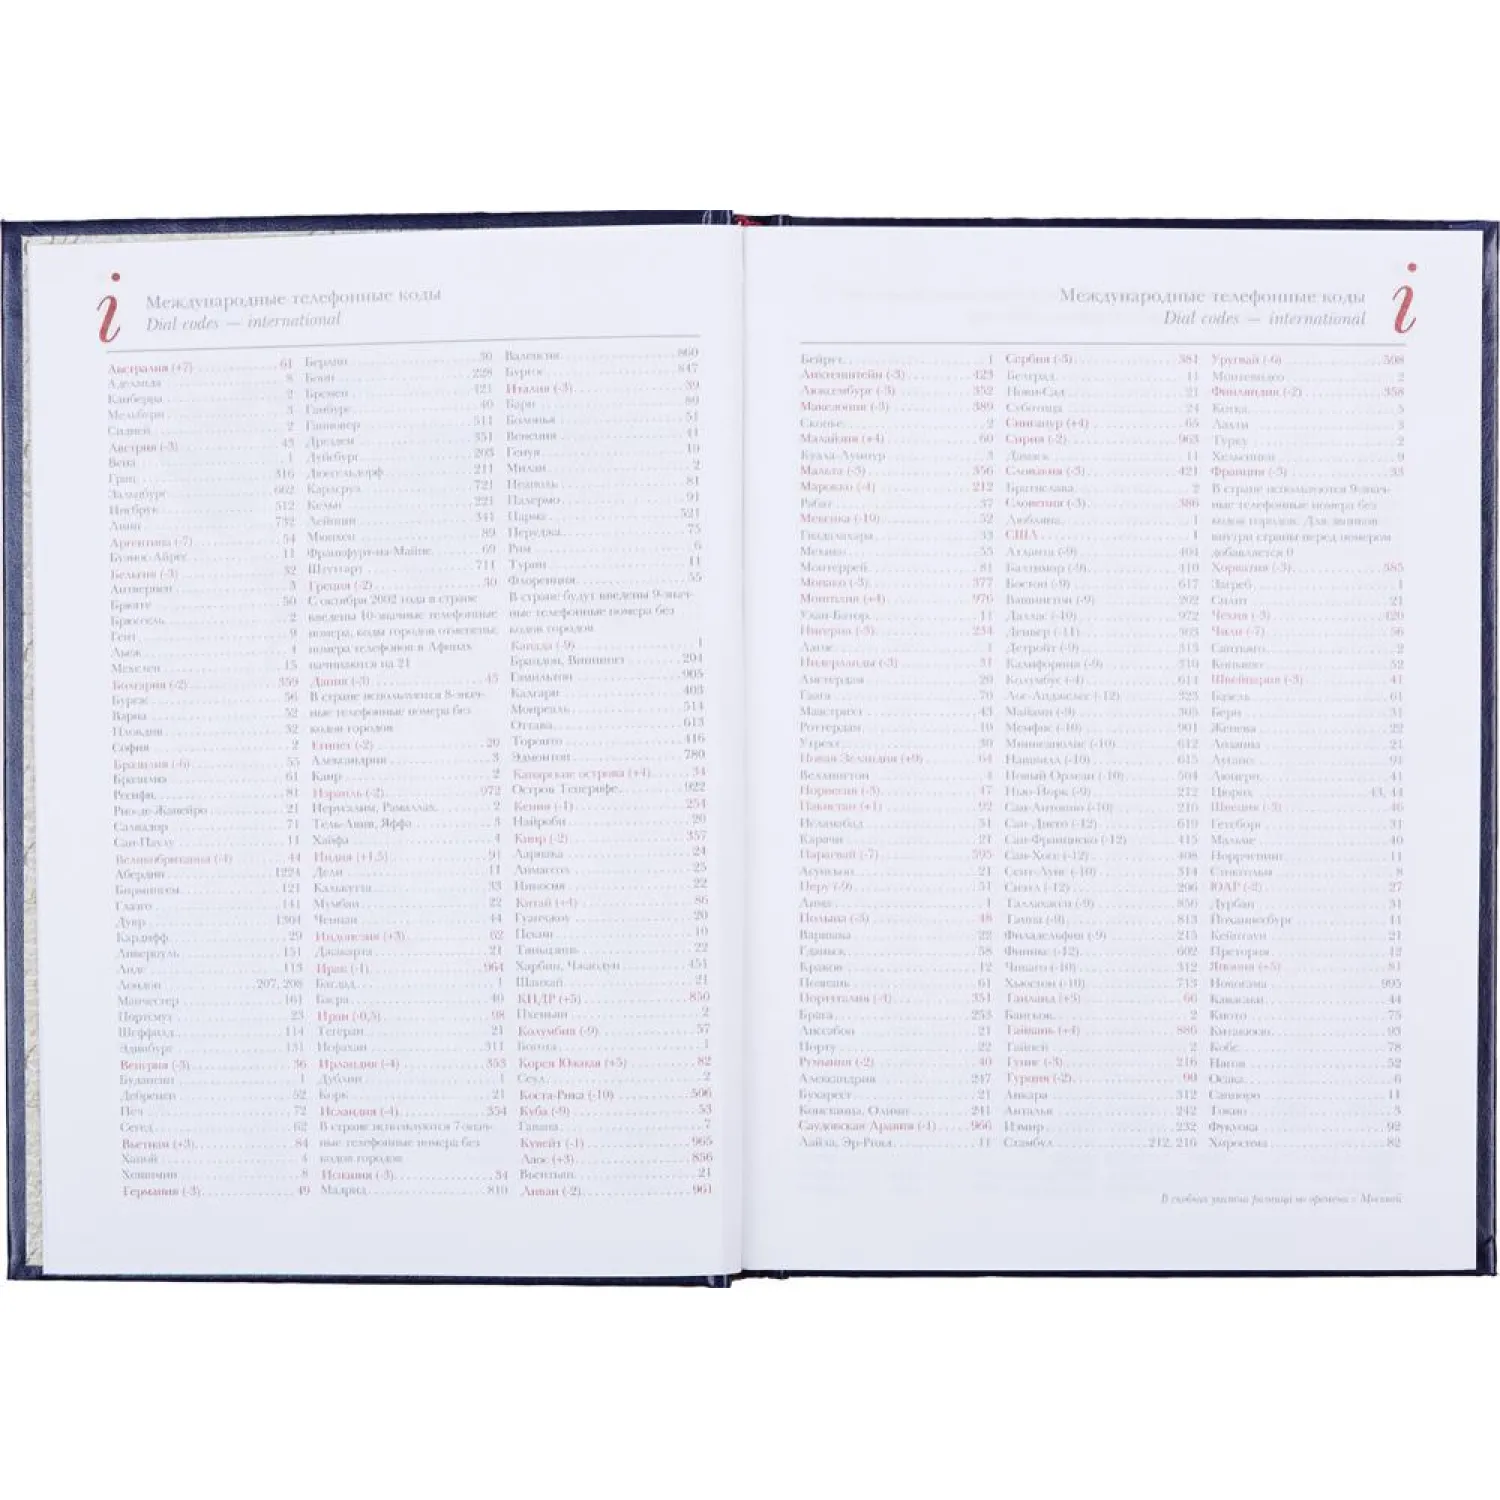 Международные телефонные коды
Dial codes — international
Австралия (+7) 61
Аделаида 8
Канберра 2
Мельбурн 3
Сидней 2
Австрия (-3) 43
Вена 1
Грац 316
Зальцбург 662
Инсбрук 512
Линц 732
Аргентина (-7) 54
Буэнос-Айрес 11
Бельгия (-3) 32
Антверпен 3
Брюгге 50
Брюссель 2
Гент 9
Льеж 4
Мехелен 15
Болгария (-2) 359
Бургас 56
Варна 52
Пловдив 32
София 2
Бразилия (-6) 55
Бразилиа 61
Ресифи 81
Рио-де-Жанейро 21
Салвадор 71
Сан-Паулу 11
Великобритания (-4) 44
Абердин 1224
Бирмингем 121
Глазго 141
Дувр 1304
Кардифф 29
Ливерпуль 151
Лидс 113
Лондон 207, 208
Манчестер 161
Портсмут 23
Шеффилд 114
Эдинбург 131
Венгрия (-3) 36
Будапешт 1
Дебрецен 52
Печ 72
Сегед 62
Вьетнам (+3) 84
Ханой 4
Хошимин 8
Германия (-3) 49
Берлин 30
Бонн 228
Бремен 421
Гамбург 40
Ганновер 511
Дрезден 351
Дуйсбург 203
Дюссельдорф 211
Карлсруэ 721
Кельн 221
Лейпциг 341
Мюнхен 89
Франкфурт-на-Майне 69
Штутгарт 711
Греция (-2) 30
С октября 2002 года в стране
введены 10-значные телефонные
номера, коды городов отменены,
номера телефонов в Афинах
начинаются на 21
Дания (-3) 45
В стране используются 8-знач-
ные телефонные номера без
кодов городов
Египет (-2) 20
Александрия 3
Каир 2
Израиль (-2) 972
Иерусалим, Рамаллах 2
Тель-Авив, Яффа 3
Хайфа 4
Индия (+1,5) 91
Дели 11
Калькутта 33
Мумбаи 22
Ченнаи 44
Индонезия (+3) 62
Джакарта 21
Ирак (-1) 964
Багдад 1
Басра 40
Иран (-0,5) 98
Тегеран 21
Исфахан 311
Ирландия (-4) 353
Дублин 1
Корк 21
Исландия (-4) 354
В стране используются 7-знач-
ные телефонные номера без
кодов городов
Испания (-3) 34
Мадрид 810
Валенсия 860
Бургос 847
Италия (-3) 39
Бари 80
Болонья 51
Венеция 41
Генуя 10
Милан 2
Неаполь 81
Палермо 91
Парма 521
Перуджа 75
Рим 6
Турин 11
Флоренция 55
В стране будут введены 9-знач-
ные телефонные номера без
кодов городов
Канада (-9) 1
Брандон, Виннипег 204
Гамильтон 905
Калгари 403
Монреаль 514
Оттава 613
Торонто 416
Эдмонтон 780
Канарские острова (+4) 34
Остров Тенерифе 922
Кения (-1) 254
Найроби 20
Кипр (-2) 357
Ларнака 24
Лимасол 25
Никосия 22
Китай (+4) 86
Гуанчжоу 20
Пекин 10
Тяньцзинь 22
Харбин, Чжаодун 451
Шанхай 21
КНДР (+5) 850
Пхеньян 2
Колумбия (-9) 57
Богота 1
Корея Южная (+5) 82
Сеул 2
Коста-Рика (-10) 506
Куба (-9) 53
Гавана 7
Кувейт (-1) 965
Лаос (+3) 856
Вьентьян 21
Ливан (-2) 961
Международные телефонные коды
Dial codes — international
Бейрут 1
Лихтенштейн (-3) 423
Люксембург (-3) 352
Македония (-3) 389
Скопье 2
Малайзия (+4) 60
Куала-Лумпур 3
Мальта (-3) 356
Марокко (-4) 212
Рабат 37
Мексика (-10) 52
Гвадалахара 33
Мехико 55
Монтеррей 81
Монако (-3) 377
Монголия (+4) 976
Улан-Батор 11
Нигерия (-3) 234
Лагос 1
Нидерланды (-3) 31
Амстердам 20
Гаага 70
Маастрихт 43
Роттердам 10
Утрехт 30
Новая Зеландия (+9) 64
Веллингтон 4
Норвегия (-3) 47
Пакистан (+1) 92
Исламабад 51
Карачи 21
Парагвай (-7) 595
Асунсьон 21
Перу (-9) 51
Лима 1
Польша (-3) 48
Варшава 22
Гданьск 58
Краков 12
Познань 61
Португалия (-4) 351
Брага 253
Лиссабон 21
Порту 22
Румыния (-2) 40
Александрия 247
Бухарест 21
Констанца, Олимп 241
Саудовская Аравия (-1) 966
Лайла, Эр-Рияд 11
Сербия (-3) 381
Белград 11
Нови-Сад 21
Суботица 24
Сингапур (+4) 65
Сирия (-2) 963
Дамаск 11
Словакия (-3) 421
Братислава 2
Словения (-3) 386
Любляна 1
США 1
Атланта (-9) 404
Балтимор (-9) 410
Бостон (-9) 617
Вашингтон (-9) 202
Даллас (-10) 972
Денвер (-11) 303
Детройт (-9) 313
Калифорния (-9) 310
Колумбус (-4) 614
Лос-Анджелес (-12) 323
Майами (-9) 305
Мемфис (-10) 901
Миннеаполис (-10) 612
Нашвилл (-10) 615
Новый Орлеан (-10) 504
Нью-Йорк (-9) 212
Сан-Антонио (-10) 210
Сан-Диего (-12) 619
Сан-Франциско (-12) 415
Сан-Хосе (-12) 408
Сент-Луис (-10) 314
Сиэтл (-12) 206
Таллахасси (-9) 850
Тампа (-9) 813
Филадельфия (-9) 215
Финикс (-12) 602
Чикаго (-10) 312
Хьюстон (-10) 713
Таиланд (+3) 66
Бангкок 2
Тайвань (+4) 886
Тайпей 2
Тунис (-3) 216
Турция (-2) 90
Анкара 312
Анталья 242
Измир 232
Стамбул 212, 216
Уругвай (-6) 598
Монтевидео 2
Финляндия (-2) 358
Котка 5
Лахти 3
Турку 2
Хельсинки 9
Франция (-3) 33
В стране используются 9-знач-
ные телефонные номера без
кодов городов. Для звонков
внутри страны перед номером
добавляется 0
Хорватия (-3) 385
Загреб 1
Сплит 21
Чехия (-3) 420
Чили (-7) 56
Сантьяго 2
Копьяпо 52
Швейцария (-3) 41
Базель 61
Берн 31
Женева 22
Лозанна 21
Лугано 91
Люцерн 41
Цюрих 43, 44
Швеция (-3) 46
Гетеборг 31
Мальме 40
Норрчепинг 11
Стокгольм 8
ЮАР (-2) 27
Дурбан 31
Йоханнесбург 11
Кейптаун 21
Претория 12
Япония (+5) 81
Иокогама 995
Кавасаки 44
Киото 75
Китакюсю 93
Кобе 78
Нагоя 52
Осака 6
Саппоро 11
Токио 3
Фукуока 92
Хиросима 82
В скобках указана разница во времени с Москвой